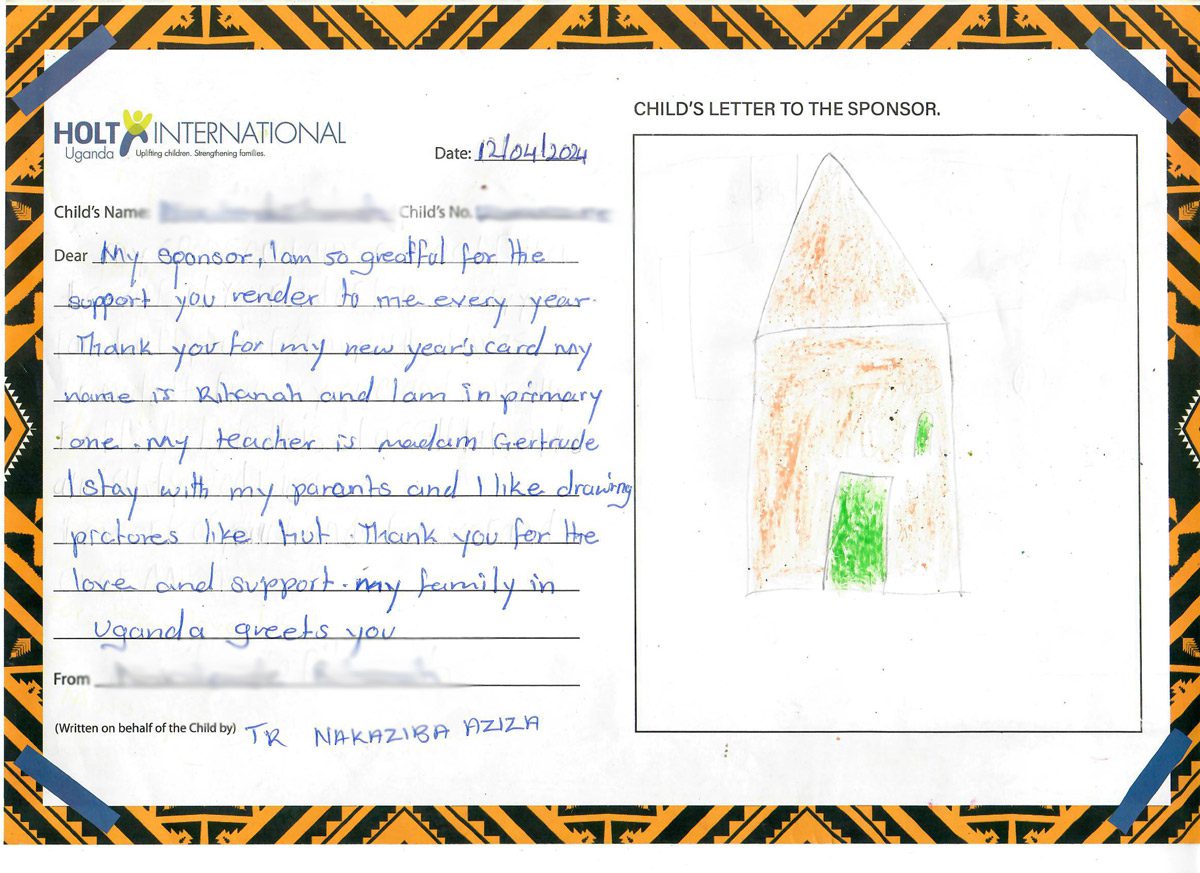 HOLT INTERNATIONAL
Uganda Uplifting children. Strengthening families.
CHILD'S LETTER TO THE SPONSOR.
Date: 12/04/2024
Child's Name: Child's No.
Dear My sponsor, I am so greatful for the
support you render to me every year.
Thank you for my new year's card my
name is Rihanah and I am in primary
one. My teacher is madam Gertrude
I stay with my parants and I like drawing
pictures like hut. Thank you for the
love and support. my family in
Uganda greets you
From
(Written on behalf of the Child by) TR NAKAZIBA AZIZA